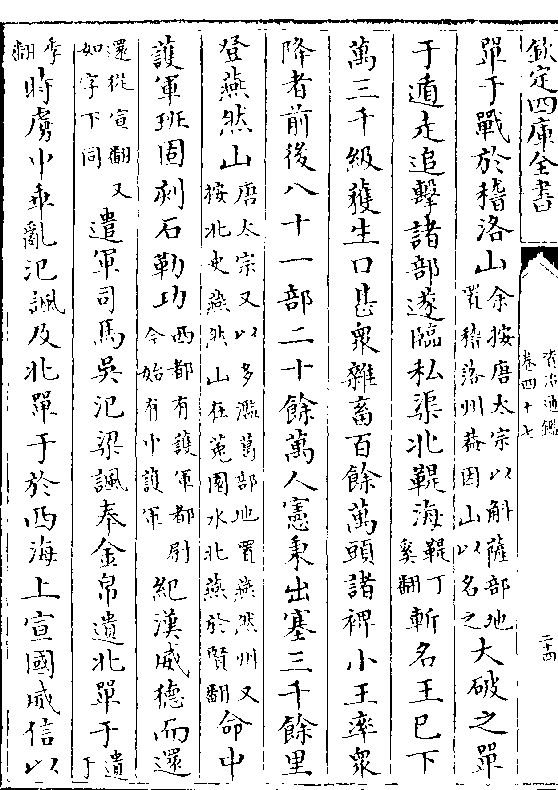 欽定四庫全書
資治通鑑
卷四十七
二十四
單于戰於稽洛山余按唐太宗以斛薩部地置稽落州葢因山以名之大破之單
于遁走追擊諸部遂臨私渠北鞮海鞮丁奚翻斬名王已下
萬三千級獲生口甚衆雜畜百餘萬頭諸裨小王率衆
降者前後八十一部二十餘萬人憲秉出塞三千餘里
登燕然山唐太宗又以多濫萬部地置燕然州又按北史燕然山在菟園水北燕於賢翻命中
護軍班固刻石勒功西都有護軍都尉今始有中護軍紀漢威德而還
還從宣翻又如字下同遣軍司馬吳汜梁諷奉金帛遺北單于遺于
季翻時虜中乖亂汜諷及北單于於西海上宣國威信以